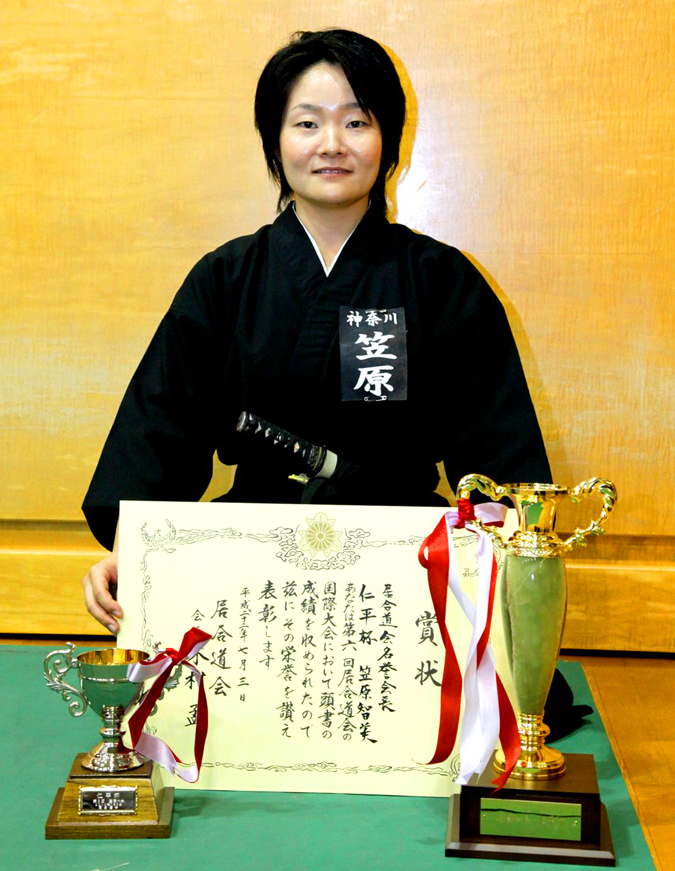 神奈川
笠原
賞状
居合道会名誉会長
仁平杯 笠原智美
あなたは第六回居合道会の
国際大会において頭書の
成績を収められたので
茲にその栄誉を讃え
表彰します
平成二十二年七月三日
居合道会
会
村
仁平杯